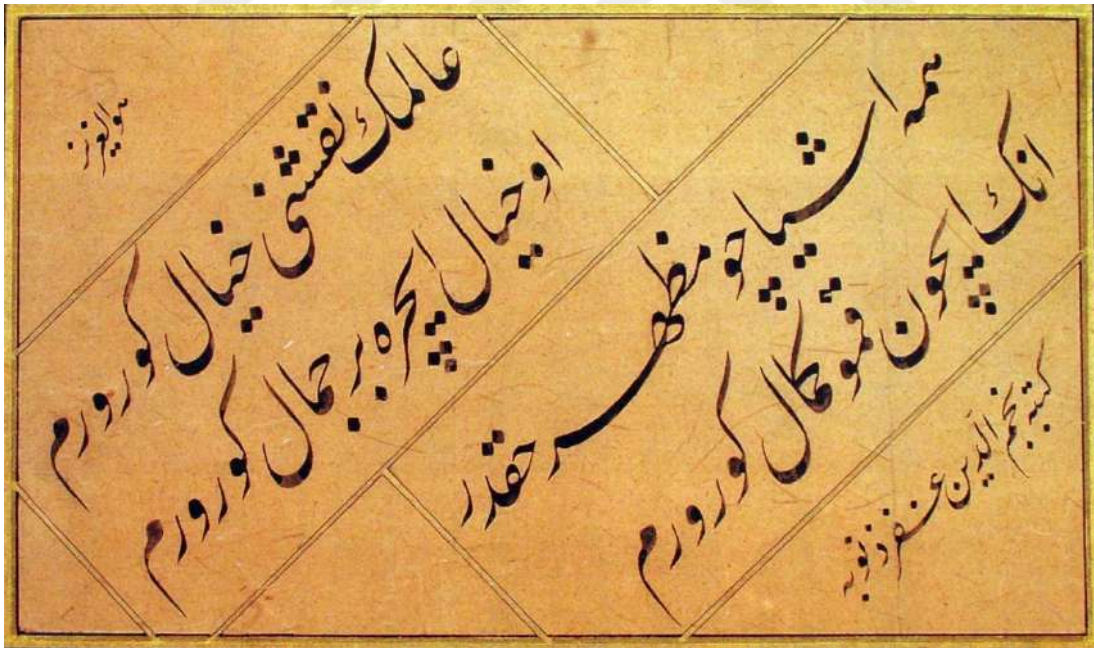 هو العزيز
عالمك نقشنى خيال كورورم
او خيال ايچره بر جمال كورورم
همه اشيا چو مظهر حقدر
انك ايچون قمو كمال كورورم
كتبه نجم الدين غفر ذنوبه